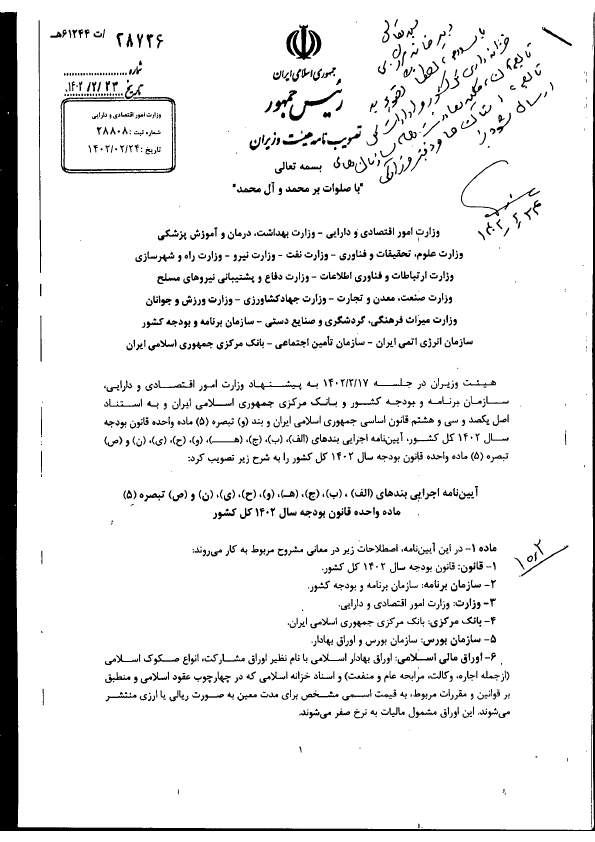 ۲۸۷۲۶ /ت ۶۱۲۴۴هـ
شماره
تاریخ ۱۴۰۲/۲/۲۳
وزارت امور اقتصادی و دارایی
شماره ثبت : ۲۸۸۰۸
تاریخ : ۱۴۰۲/۰۲/۲۴
جمهوری اسلامی ایران
رئیس جمهور
تصویب نامه هیئت وزیران
بسمه تعالی
"با صلوات بر محمد و آل محمد"
۱۴۰۲/۲/۲۴
وزارت امور اقتصادی و دارایی – وزارت بهداشت، درمان و آموزش پزشکی
وزارت علوم، تحقیقات و فناوری – وزارت نفت – وزارت نیرو – وزارت راه و شهرسازی
وزارت ارتباطات و فناوری اطلاعات – وزارت دفاع و پشتیبانی نیروهای مسلح
وزارت صنعت، معدن و تجارت – وزارت جهادکشاورزی – وزارت ورزش و جوانان
وزارت میراث فرهنگی، گردشگری و صنایع دستی – سازمان برنامه و بودجه کشور
سازمان انرژی اتمی ایران – سازمان تأمین اجتماعی – بانک مرکزی جمهوری اسلامی ایران
هیئت وزیران در جلسه ۱۴۰۲/۲/۱۷ به پیشنهاد وزارت امور اقتصادی و دارایی،
سازمان برنامه و بودجه کشور و بانک مرکزی جمهوری اسلامی ایران و به استناد
اصل یکصد و سی و هشتم قانون اساسی جمهوری اسلامی ایران و بند (و) تبصره (۵) ماده واحده قانون بودجه
سال ۱۴۰۲ کل کشور، آیین‌نامه اجرایی بندهای (الف)، (ب)، (ج)، (هـ)، (و)، (ح)، (ی)، (ن) و (ص)
تبصره (۵) ماده واحده قانون بودجه سال ۱۴۰۲ کل کشور را به شرح زیر تصویب کرد:
آیین‌نامه اجرایی بندهای (الف) ، (ب)، (ج)، (هـ)، (و)، (ح)، (ی)، (ن) و (ص) تبصره (۵)
ماده واحده قانون بودجه سال ۱۴۰۲ کل کشور
ماده ۱– در این آیین‌نامه، اصطلاحات زیر در معانی مشروح مربوط به کار می‌روند:
۱– قانون: قانون بودجه سال ۱۴۰۲ کل کشور.
۲– سازمان برنامه: سازمان برنامه و بودجه کشور.
۳– وزارت: وزارت امور اقتصادی و دارایی.
۴– بانک مرکزی: بانک مرکزی جمهوری اسلامی ایران.
۵– سازمان بورس: سازمان بورس و اوراق بهادار.
۶– اوراق مالی اسلامی: اوراق بهادار اسلامی با نام نظیر اوراق مشارکت، انواع صکوک اسلامی
(ازجمله اجاره، وکالت، مرابحه عام و منفعت) و اسناد خزانه اسلامی که در چهارچوب عقود اسلامی و منطبق
بر قوانین و مقررات مربوط، به قیمت اسمی مشخص برای مدت معین به صورت ریالی یا ارزی منتشر
می‌شوند. این اوراق مشمول مالیات به نرخ صفر می‌شوند.
۱